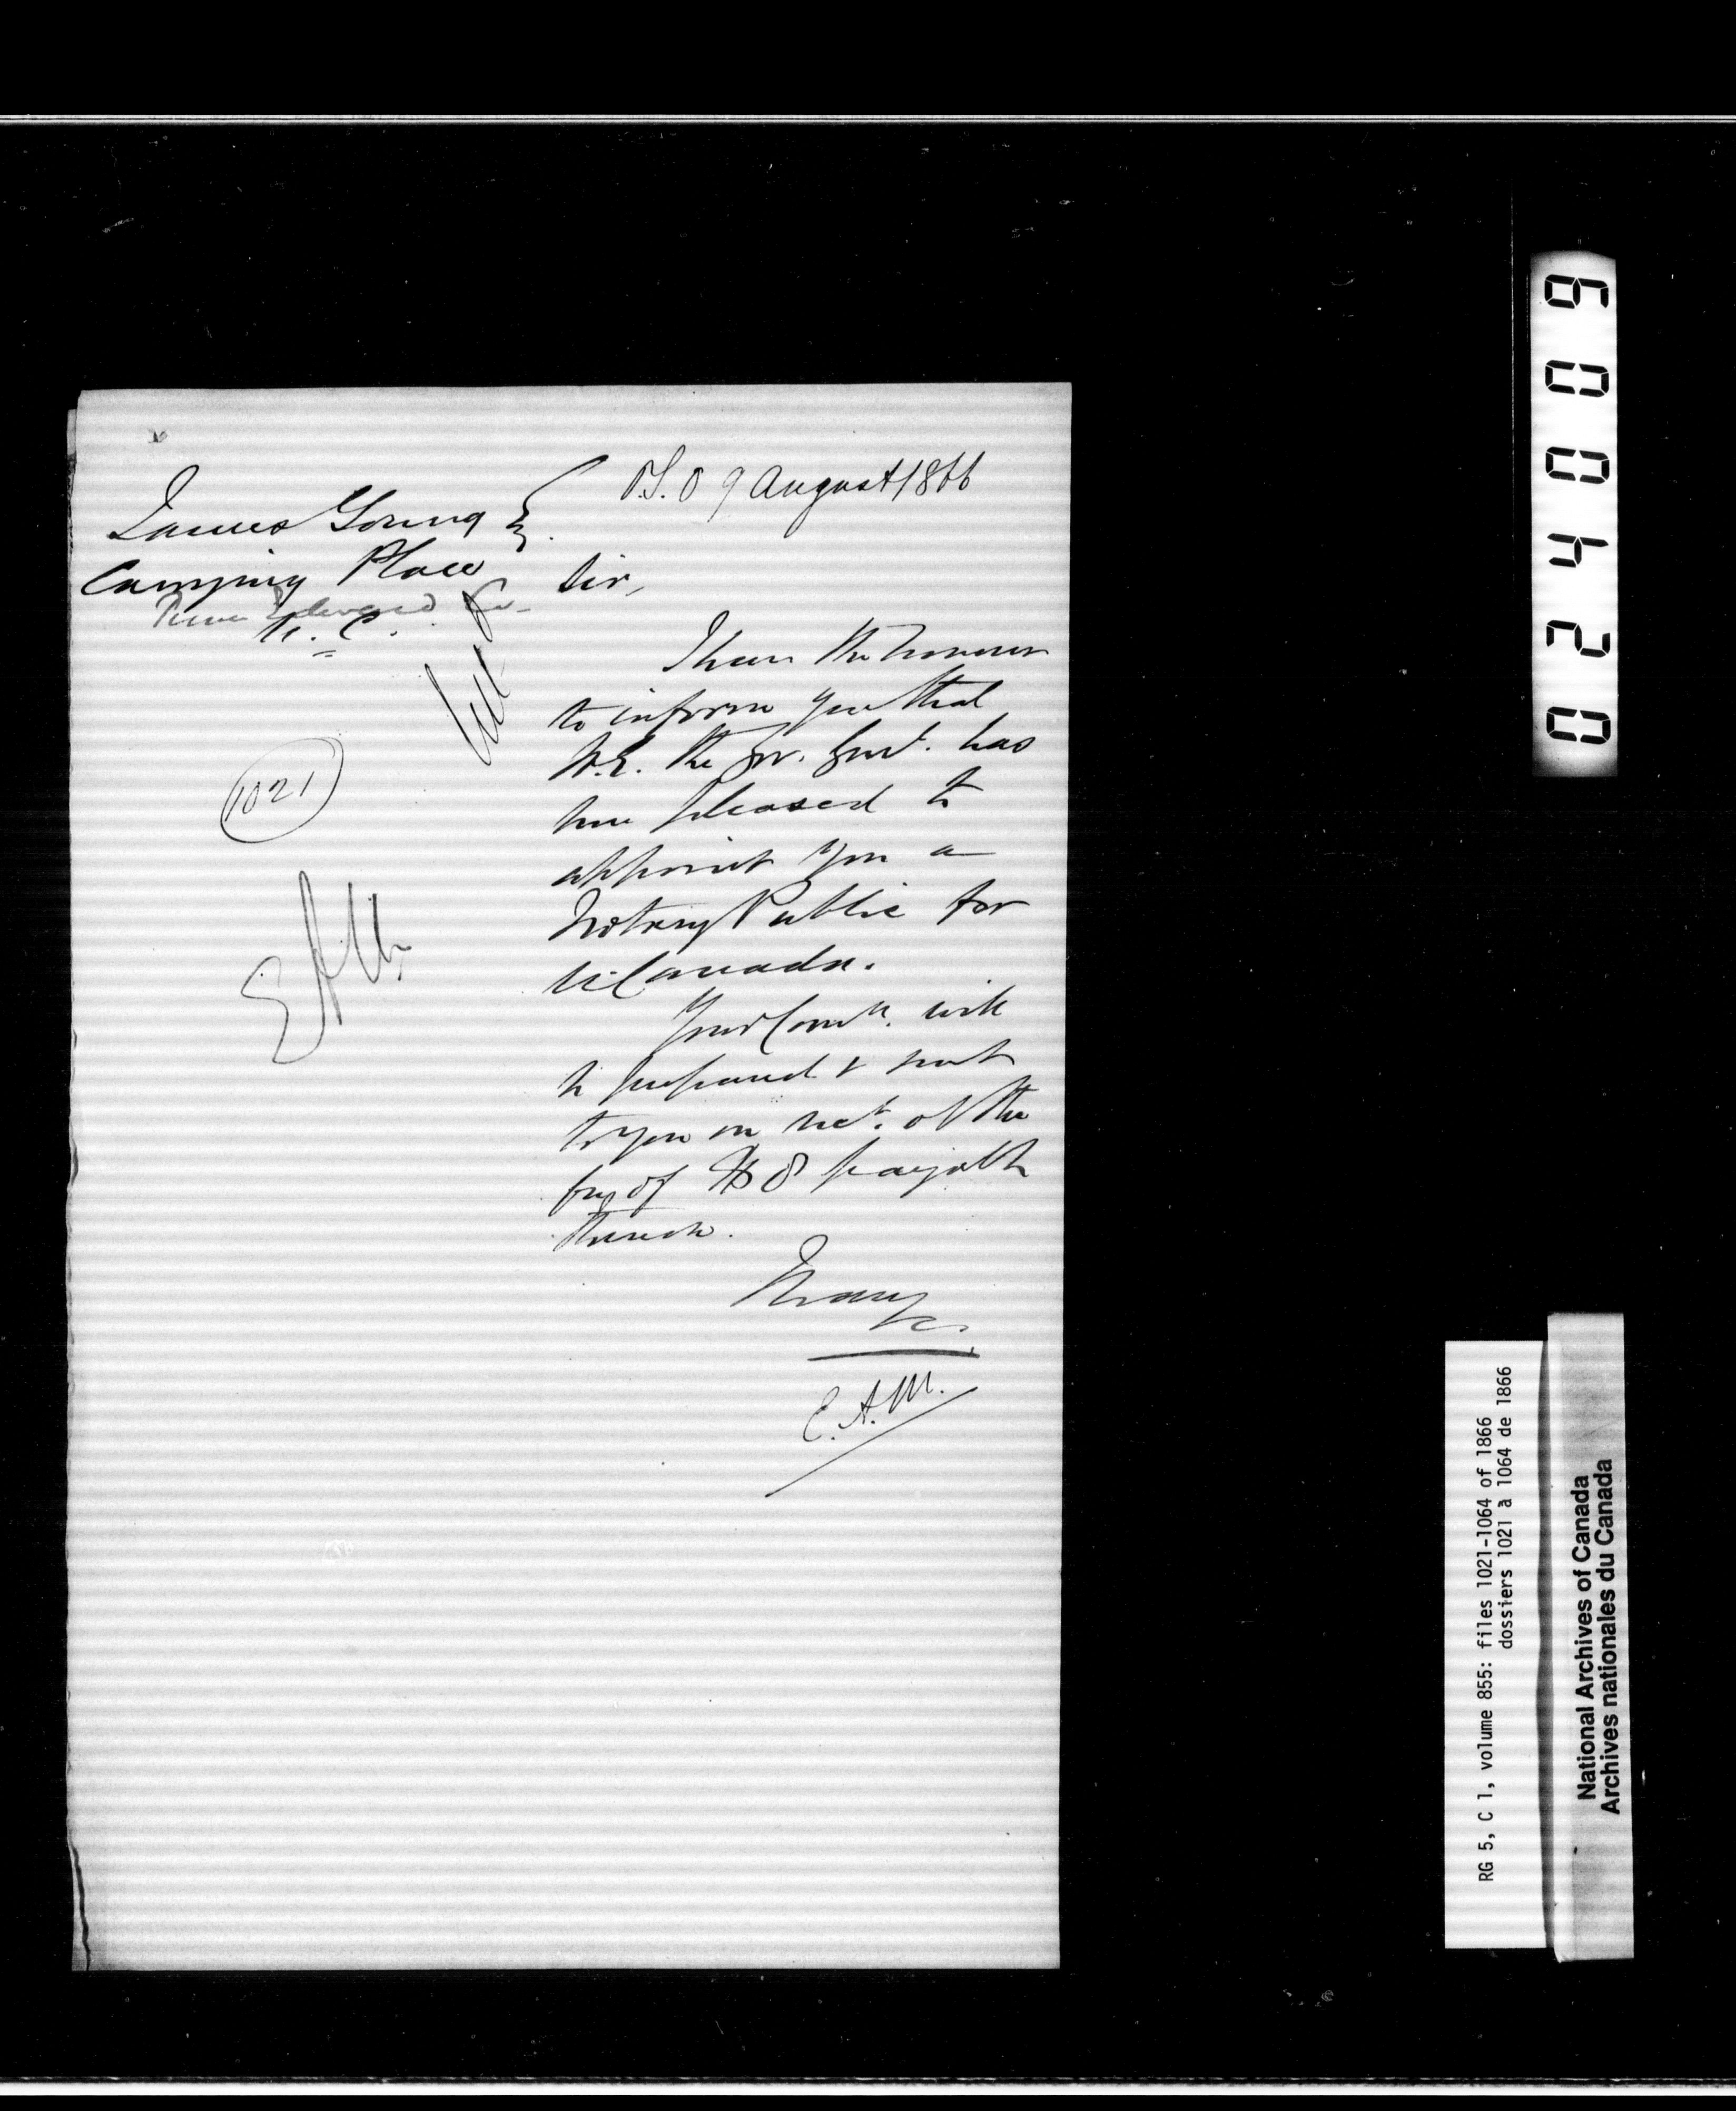 P.S.O 9 August 1866
James Young Esq.
Carrying Place
Prince Edward Co.
U. C.
Sir,
I have the honour
to inform you that
H.E. the Gov. Genl. has
been pleased to
appoint you a
Notary Public for
U. Canada.
Your Comn. will
be prepared & sent
to you on rect. of the
fee of $8 payable
thereon.
I have
&c.
E.A.M.
1021
RG 5, C 1, volume 855: files 1021-1064 of 1866
dossiers 1021 à 1064 de 1866
National Archives of Canada
Archives nationales du Canada
024009